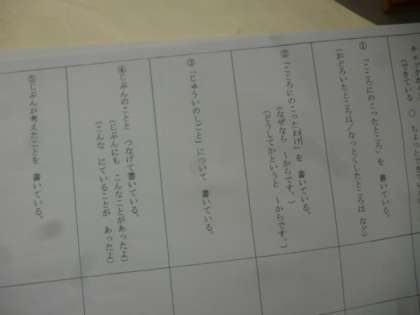 （できている ○
① 「こころにのこったところ」を 書いている。
（おどろいたところは／なっとくしたところは など）
② 「こころにのこったわけ」を 書いている。
（なぜなら ～からです。）
（どうしてかというと ～からです。）
③ 「じゅういのしごと」について 書いている。
④ じぶんのことと つなげて書いている。
（じぶんにも こんなことがあったよ）
（こんな にていることが あったよ）
⑤ じぶんが考えたことを 書いている。